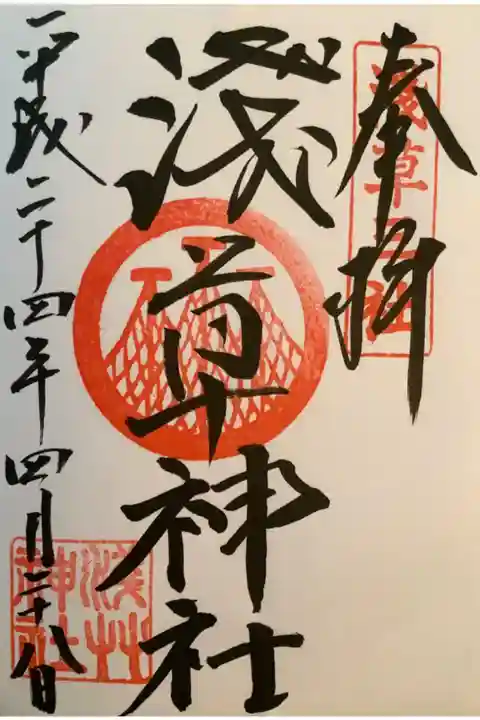 奉拝
淺草三社
淺草神社
平成二十四年四月二十八日
淺艸神社